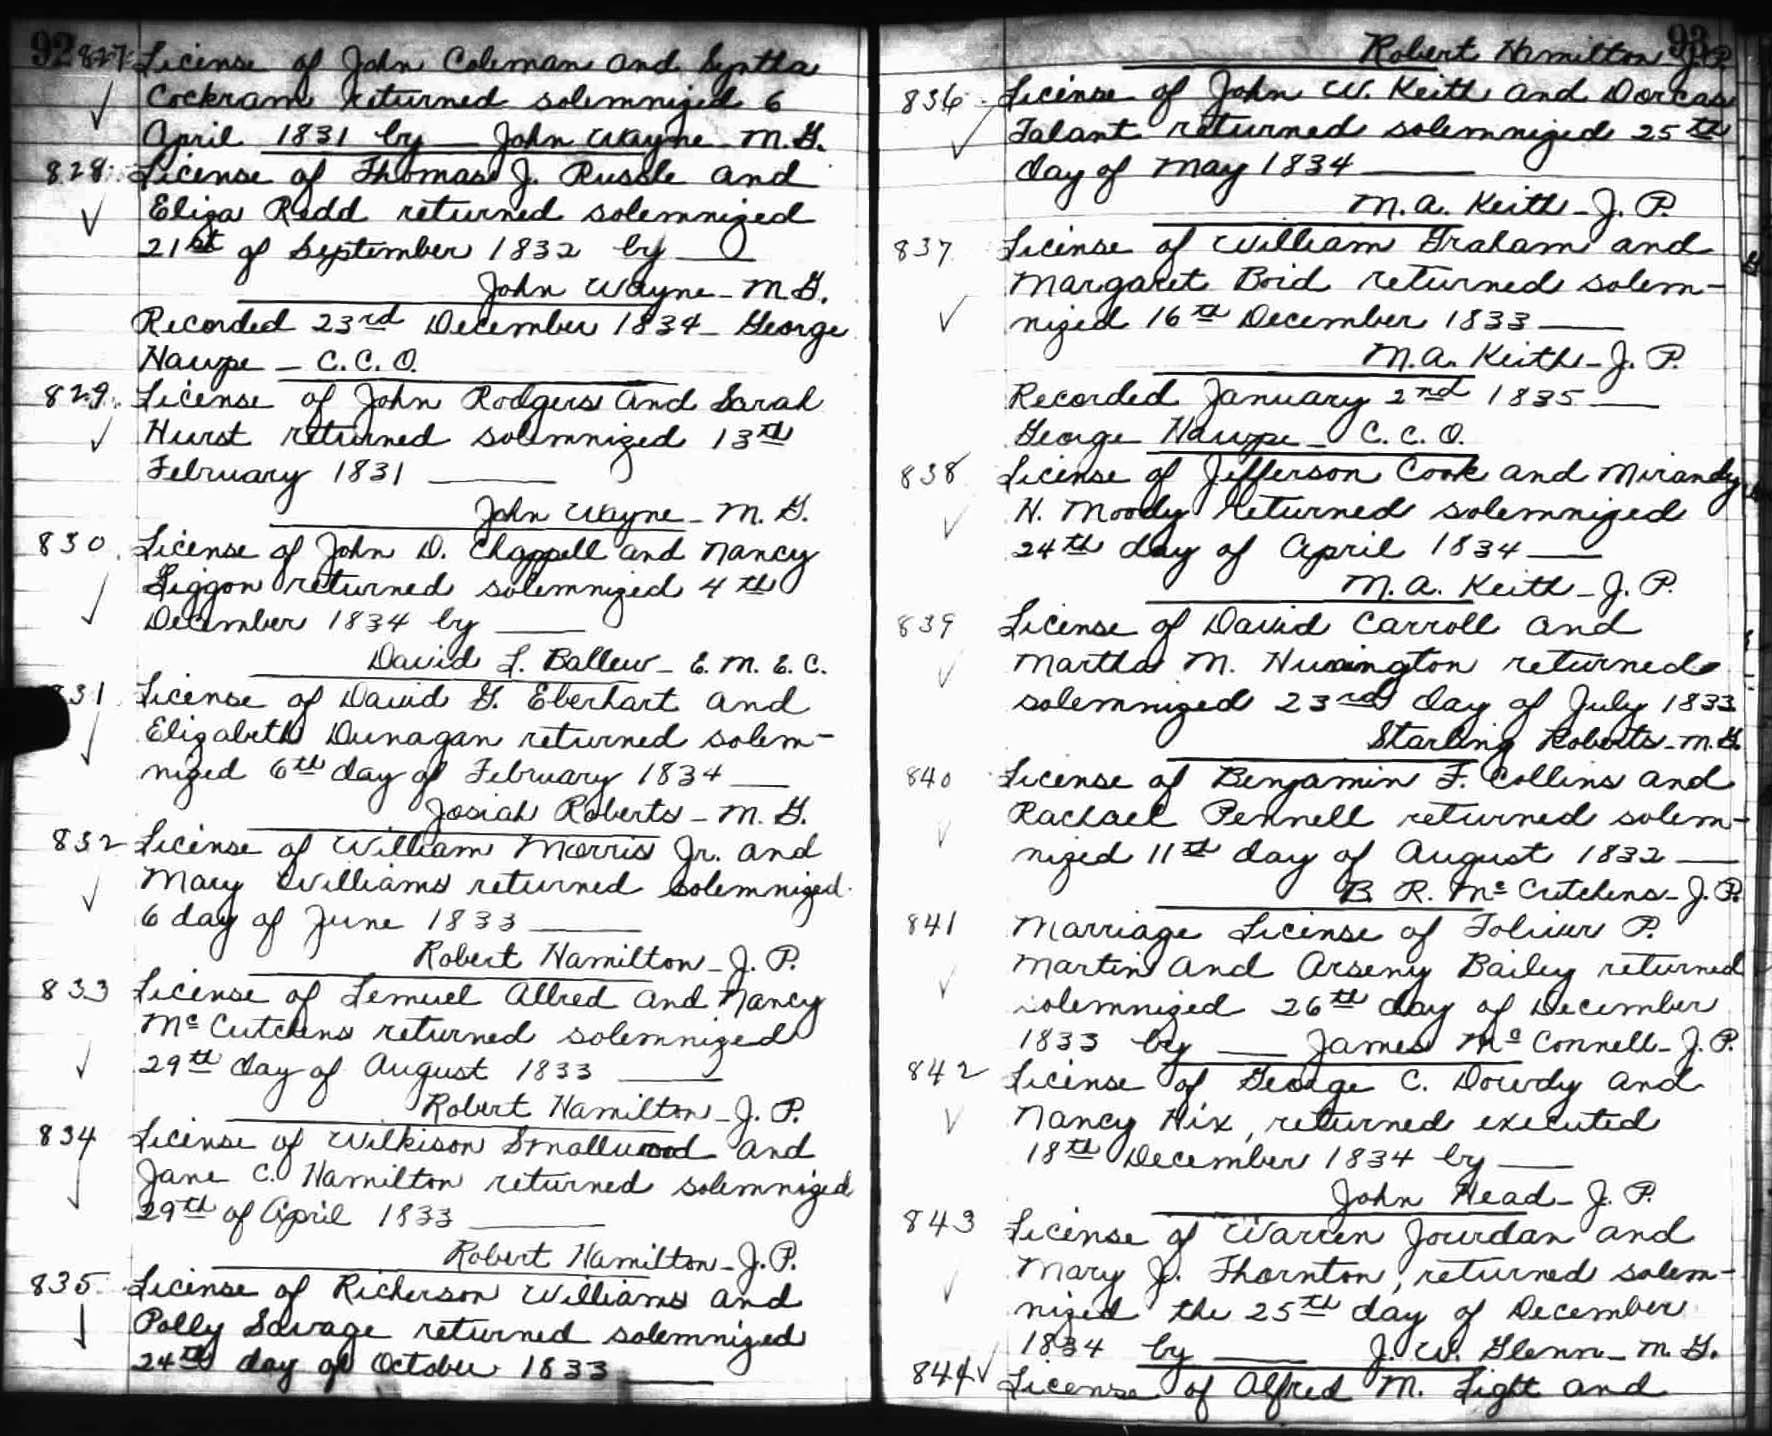 92
827 License of John Coleman and Syntha
Cockram returned solemnized 6
April 1831 by — John Wayne - M.G.
828 License of Thomas J. Russle and
Eliza Redd returned solemnized
21st of September 1832 by —
John Wayne - M.G.
Recorded 23rd December 1834 - George
Hawpe - C.C.O.
829 License of John Rodgers and Sarah
Hurst returned solemnized 13th
February 1831 —
John Wayne - M.G.
830 License of John D. Chappell and Nancy
Liggon returned solemnized 4th
December 1834 by —
David L. Ballew - E.M.E.C.
831 License of David G. Eberhart and
Elizabeth Dunagan returned solem-
nized 6th day of February 1834 —
Josiah Roberts - M.G.
832 License of William Morris Jr. and
Mary Williams returned solemnized
6 day of June 1833 —
Robert Hamilton - J.P.
833 License of Lemuel Allred and Nancy
McCutchens returned solemnized
29th day of August 1833 —
Robert Hamilton - J.P.
834 License of Wilkison Smallwood and
Jane C. Hamilton returned solemnized
29th of April 1833 —
Robert Hamilton - J.P.
835 License of Richerson Williams and
Polly Savage returned solemnized
24th day of October 1833 —
93
Robert Hamilton J.P.
836 License of John W. Keith and Dorcas
Talant returned solemnized 25th
day of May 1834 —
M.A. Keith - J.P.
837 License of William Graham and
Margaret Boid returned solem-
nized 16th December 1833 —
M.A. Keith - J.P.
Recorded January 2nd 1835 —
George Hawpe - C.C.O.
838 License of Jefferson Cook and Mirandy
H. Moody returned solemnized
24th day of April 1834 —
M.A. Keith - J.P.
839 License of David Carroll and
Martha M. returned
solemnized 23rd day of July 1833
Starling Roberts - M.G.
840 License of Benjamin F. Collins and
Rachael Pennell returned solem-
nized 11th day of August 1832 —
B.R. McCutchens - J.P.
841 Marriage License of Toliver P.
Martin and Arseny Bailey returned
solemnized 26th day of December
1833 by — James McConnell - J.P.
842 License of George C. Dowdy and
Nancy Hix, returned executed
18th December 1834 by —
John Head - J.P.
843 License of Warren Jourdan and
Mary J. Thornton, returned solem-
nized the 25th day of December
1834 by — J.W. Glenn - M.G.
844 License of Alfred M. Light and